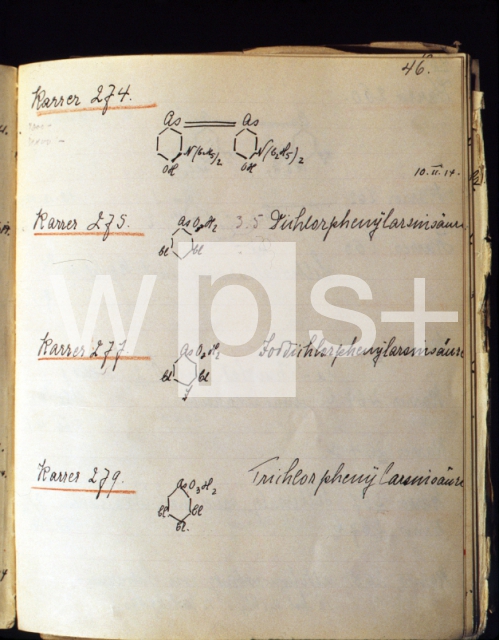 46.
Karrer 274.
As As
N(C2H5)2 N(C2H5)2
OH OH
10.II.14.
Karrer 275.
AsO3H2 3.5 Dichlorphenylarsinsäure
Cl Cl
wps+
Karrer 277.
AsO3H2 Joddichlorphenylarsinsäure
Cl Cl
J
Karrer 279.
AsO3H2 Trichlorphenylarsinsäure
Cl Cl
Cl.